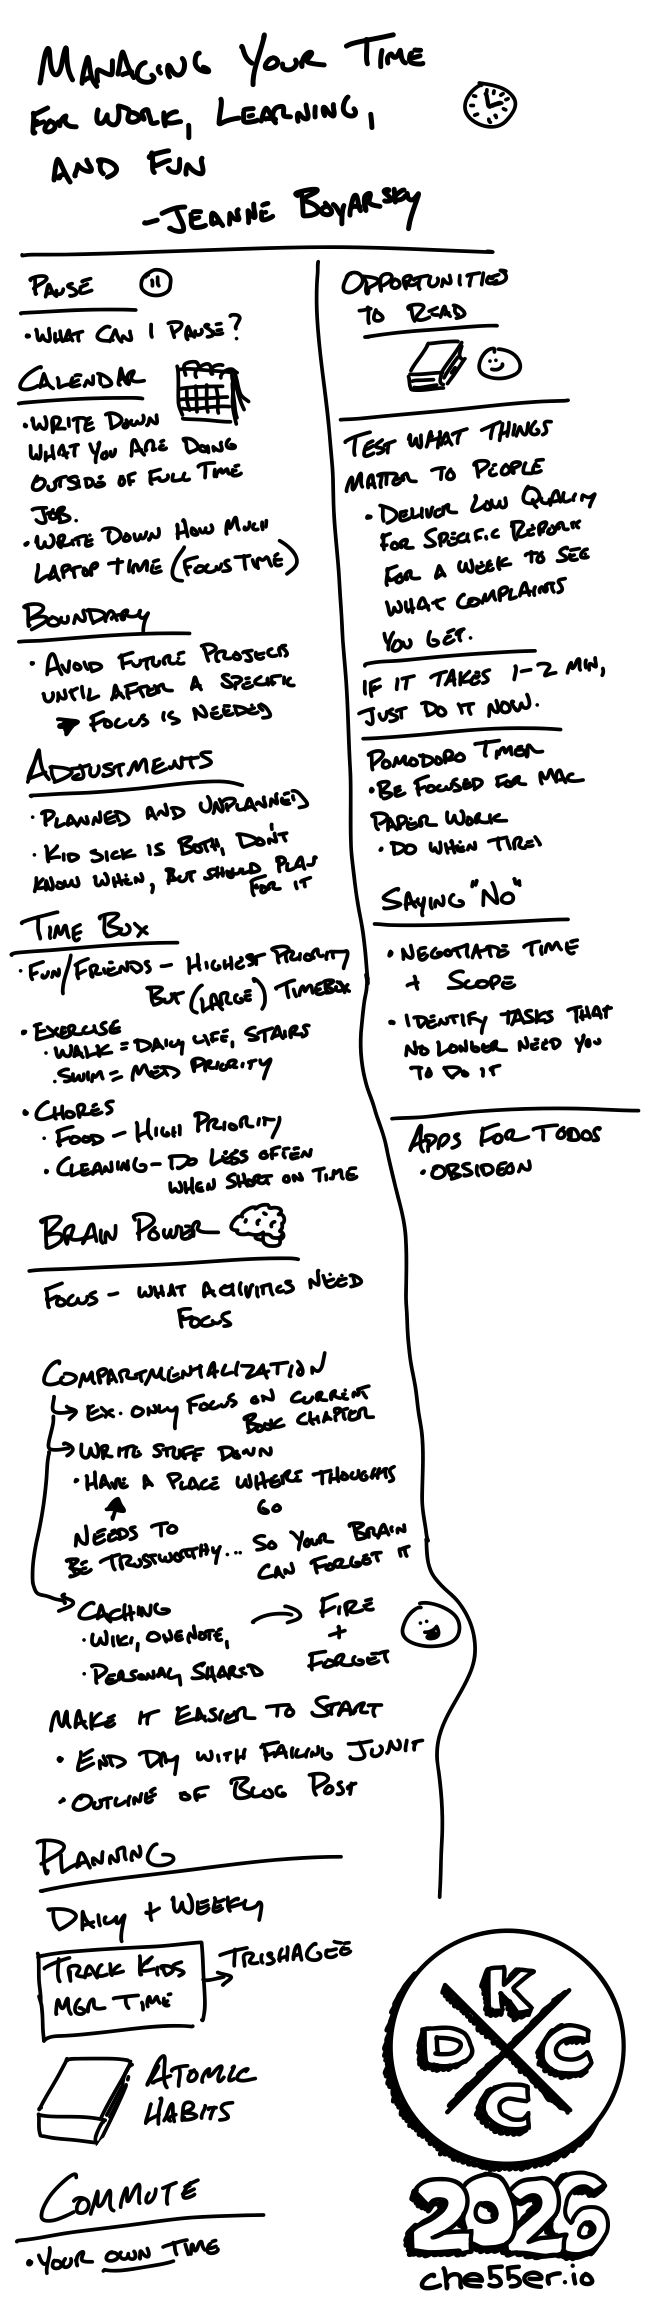 MANAGING YOUR TIME
FOR WORK, LEARNING,
AND FUN
-JEANNE BOYARSKY
PAUSE
• WHAT CAN I PAUSE?
CALENDAR
• WRITE DOWN
WHAT YOU ARE DOING
OUTSIDE OF FULL TIME
JOB.
• WRITE DOWN HOW MUCH
LAPTOP TIME (FOCUS TIME)
BOUNDARY
• AVOID FUTURE PROJECTS
UNTIL AFTER A SPECIFIC
→ FOCUS IS NEEDED
ADJUSTMENTS
• PLANNED AND UNPLANNED
• KID SICK IS BOTH, DON'T
KNOW WHEN, BUT SHOULD PLAN
FOR IT
TIME BOX
• FUN/FRIENDS - HIGHEST PRIORITY
BUT (LARGE) TIMEBOX
• EXERCISE
• WALK = DAILY LIFE, STAIRS
• SWIM = MED PRIORITY
• CHORES
• FOOD - HIGH PRIORITY
• CLEANING - DO LESS OFTEN
WHEN SHORT ON TIME
BRAIN POWER
FOCUS - WHAT ACTIVITIES NEED
FOCUS
COMPARTMENTALIZATION
→ EX. ONLY FOCUS ON CURRENT
BOOK CHAPTER
→ WRITE STUFF DOWN
• HAVE A PLACE WHERE THOUGHTS
GO
NEEDS TO
BE TRUSTWORTHY... SO YOUR BRAIN
CAN FORGET IT
→ CACHING
• WIKI, ONENOTE,
• PERSONAL, SHARED
→ FIRE
+
FORGET
MAKE IT EASIER TO START
• END DAY WITH FAILING JUNIT
• OUTLINE OF BLOG POST
PLANNING
DAILY + WEEKLY
TRACK KIDS
MGR TIME
→ TRISHAGEE
ATOMIC
HABITS
COMMUTE
• YOUR OWN TIME
OPPORTUNITIES
TO READ
TEST WHAT THINGS
MATTER TO PEOPLE
• DELIVER LOW QUALITY
FOR SPECIFIC REPORT
FOR A WEEK TO SEE
WHAT COMPLAINTS
YOU GET.
IF IT TAKES 1-2 MIN,
JUST DO IT NOW.
POMODORO TIMER
• BE FOCUSED FOR MAC
PAPER WORK
• DO WHEN TIRED
SAYING "NO"
• NEGOTIATE TIME
+ SCOPE
• IDENTIFY TASKS THAT
NO LONGER NEED YOU
TO DO IT
APPS FOR TODOS
• OBSIDEON
K
D C
C
2026
che55er.io